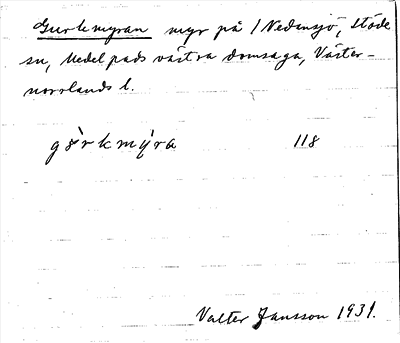 Gurkmyran myr på 1 Nedansjö, Stöde
sn, Medelpads västra domsaga, Väster-
norrlands l.
118
Valter Jansson 1931.